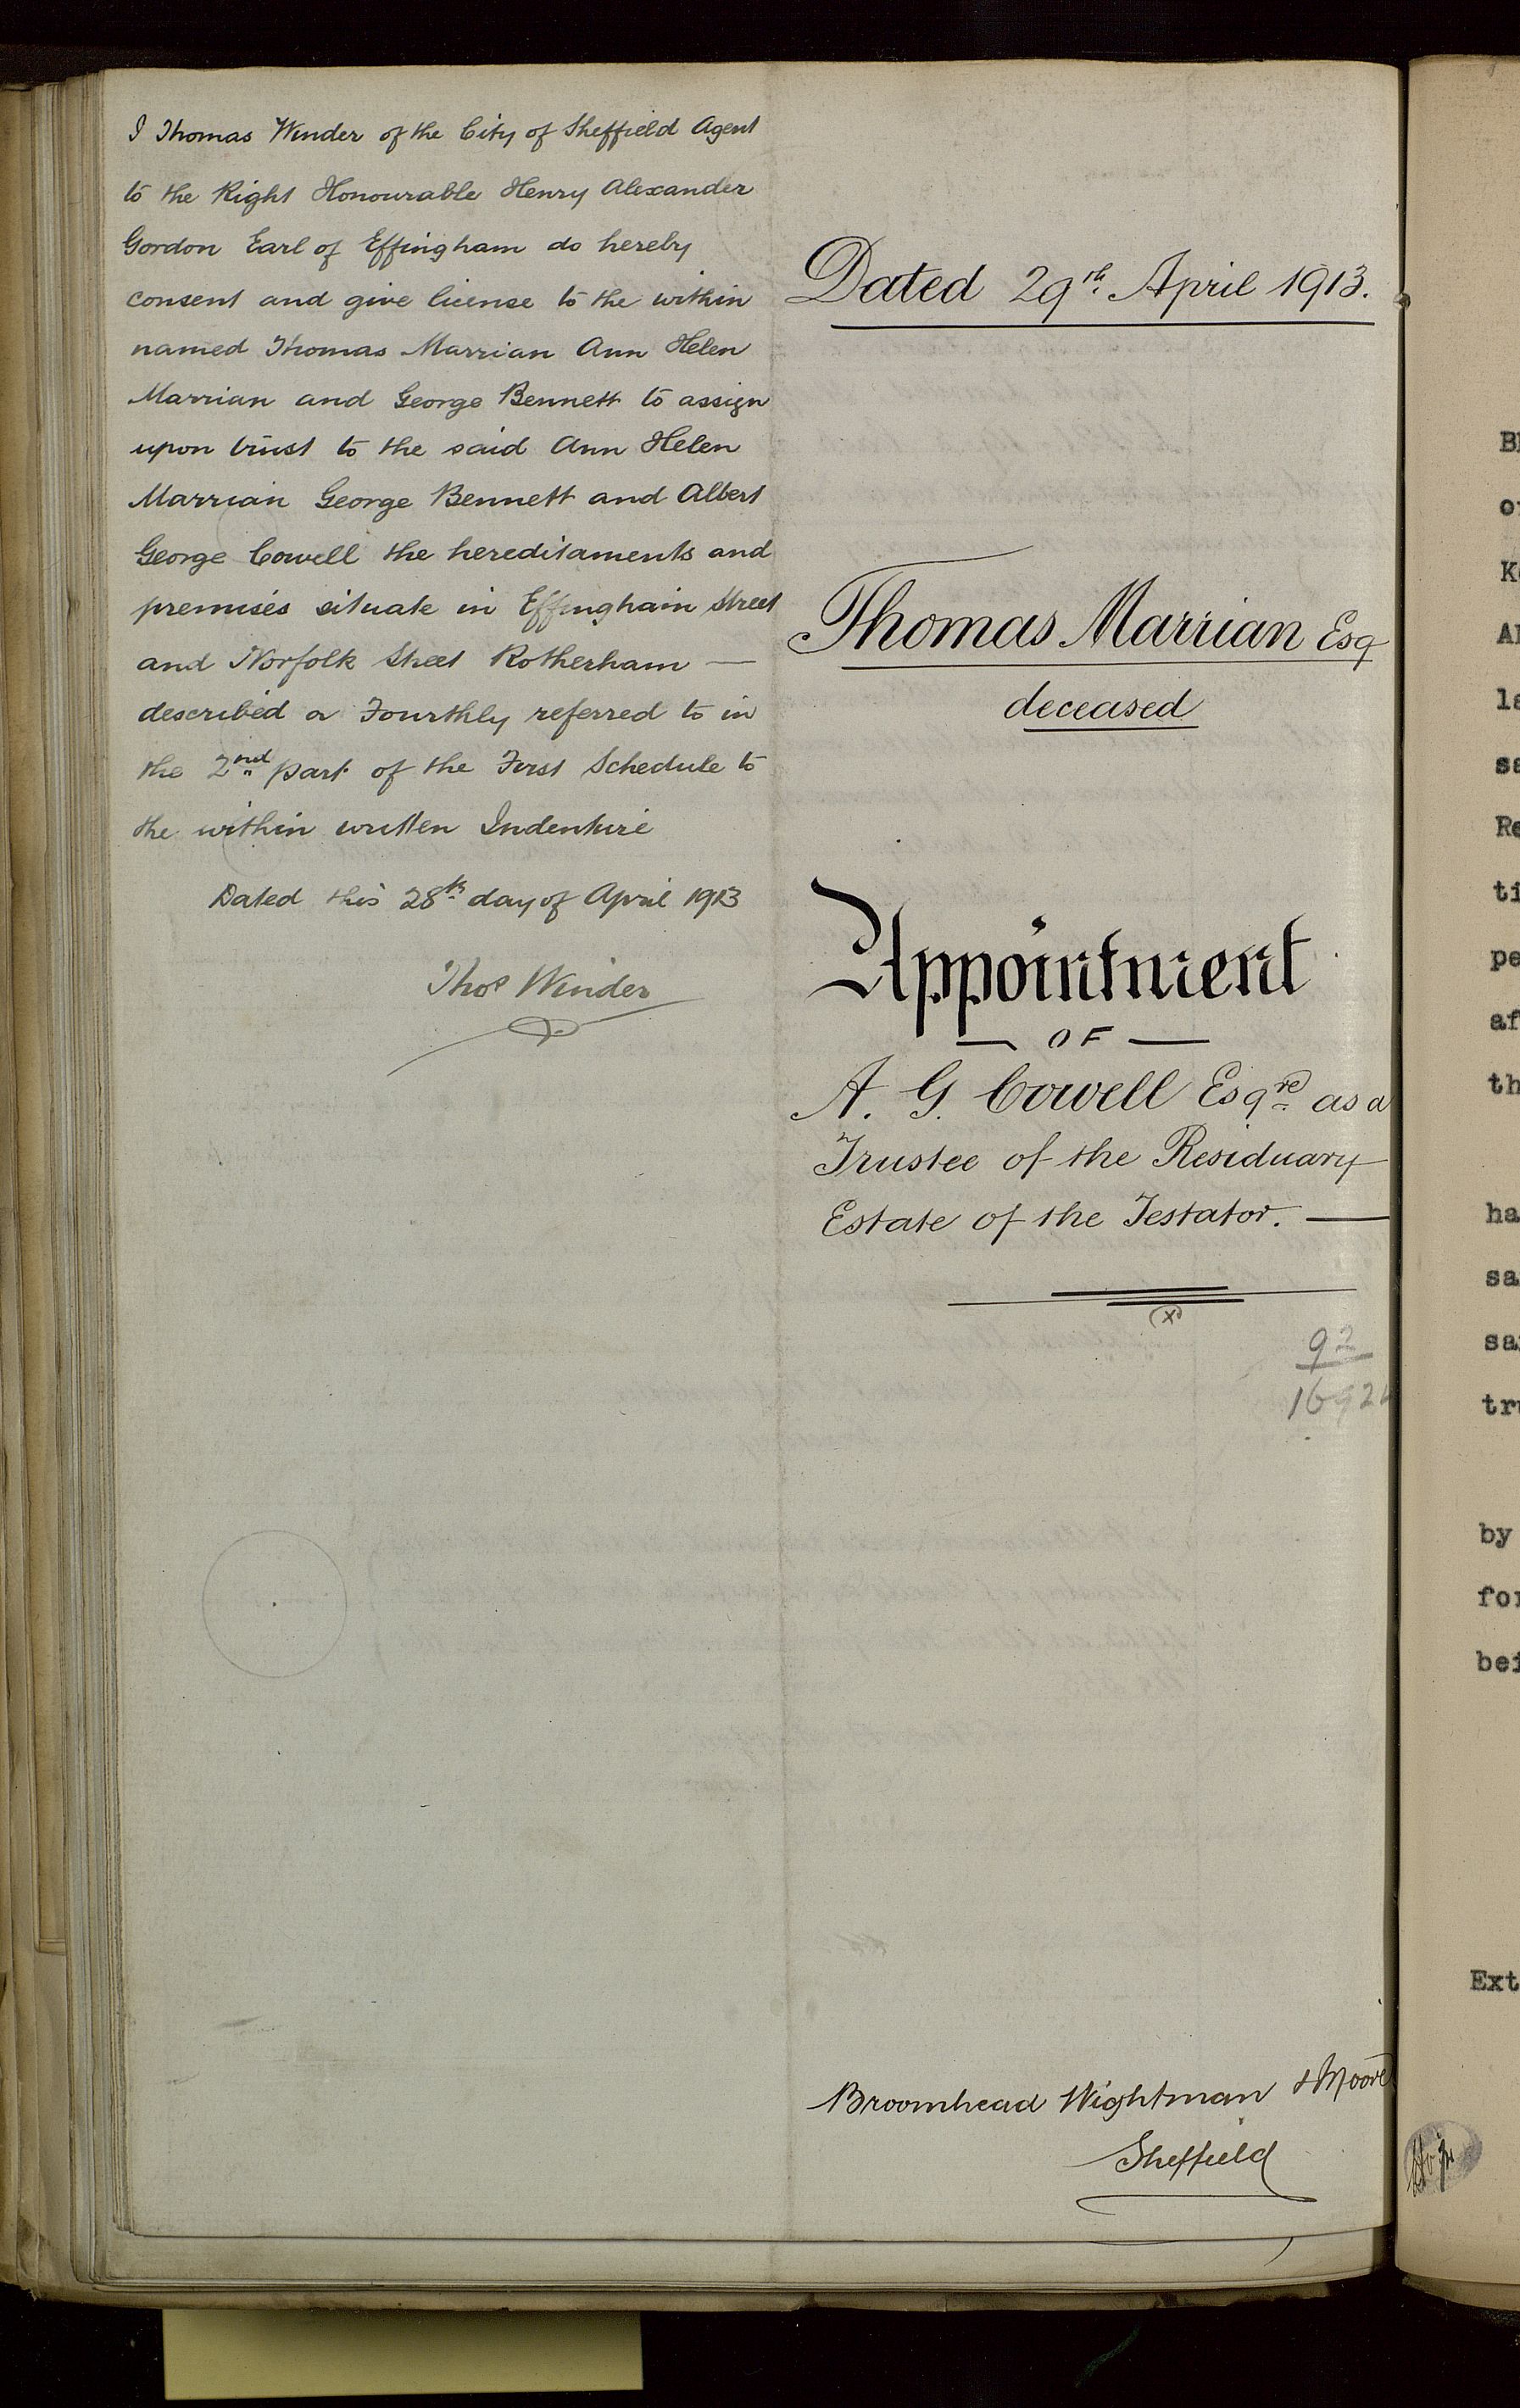 I Thomas Winder of the City of Sheffield Agent
to the Right Honourable Henry Alexander
Gordon Earl of Effingham do hereby
consent and give license to the within
named Thomas Marrian Ann Helen
Marrian and George Bennett to assign
upon trust to the said Ann Helen
Marrian George Bennett and Albert
George Cowell the hereditaments and
premises situate in Effingham Street
and Norfolk Street Rotherham —
described or Fourthly referred to in
the 2nd part of the First Schedule to
the within written Indenture
Dated this 28th day of April 1913
Thos Winder
Dated 29th April 1913.
Thomas Marrian Esq
deceased
Appointment
— OF —
A. G. Cowell Esqre as a
Trustee of the Residuary
Estate of the Testator. —
(x)
92
Broomhead Wightman & Moore
Sheffield
of
la
sa
Re
ti
pe
af
th
ha
sa
sa
tr
by
for
bei
Ext